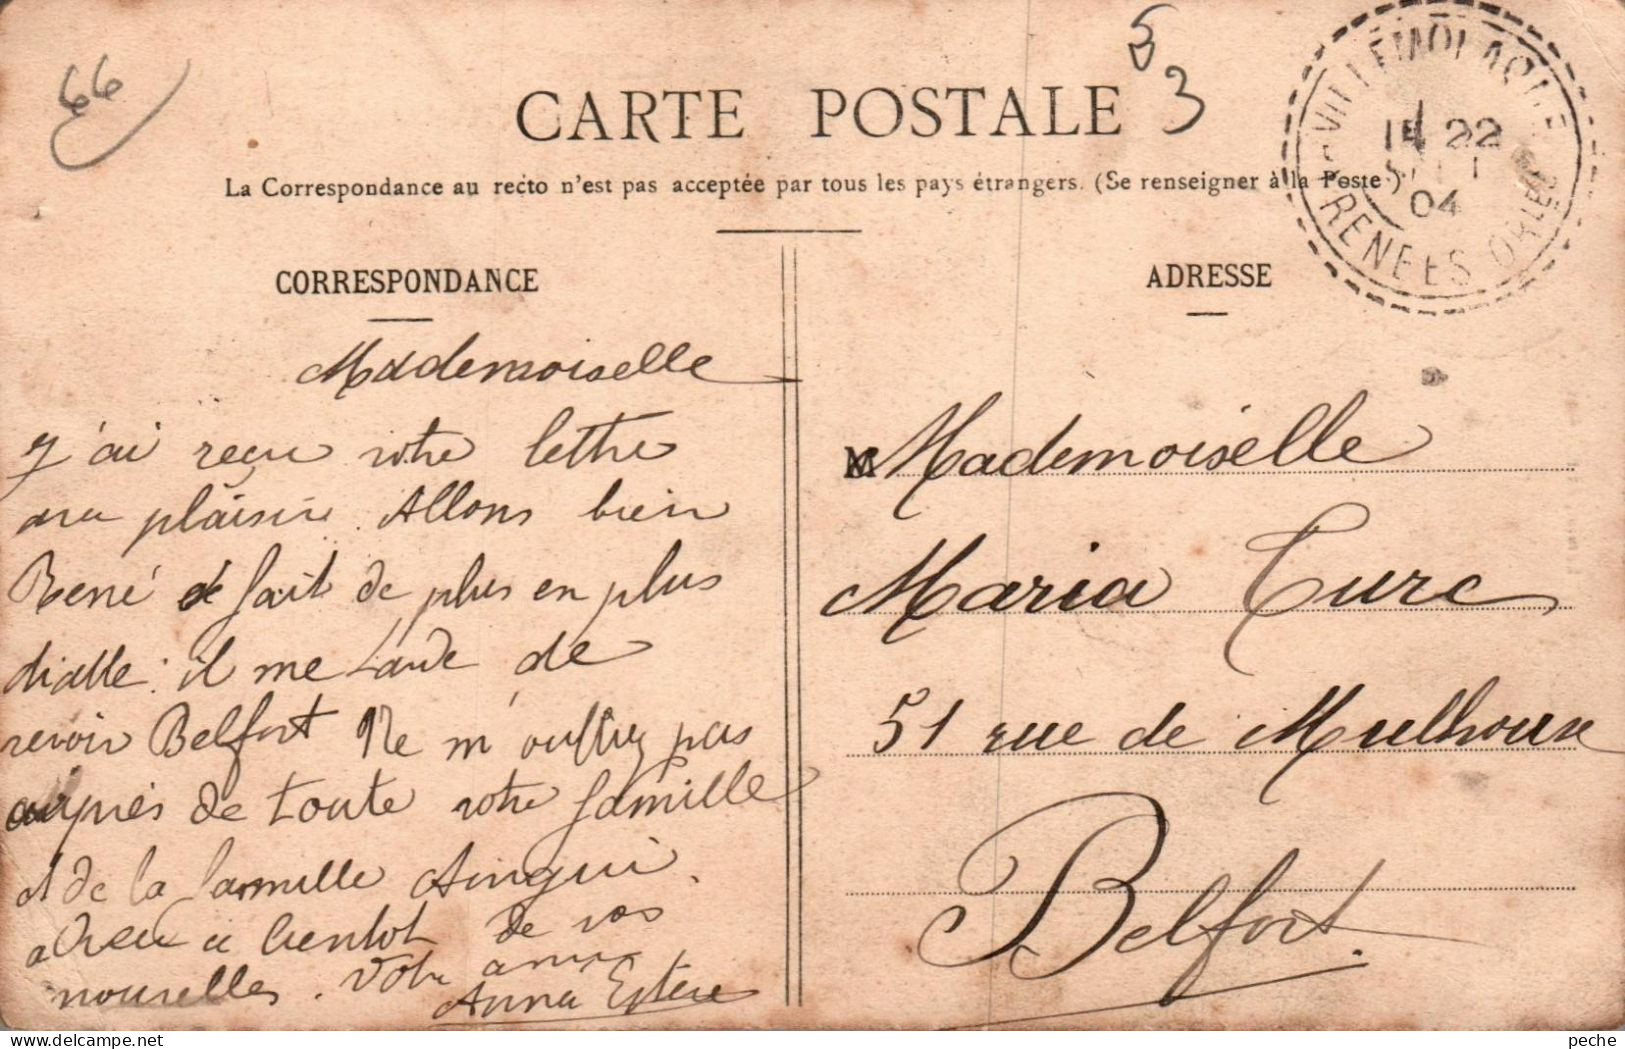 66
5
3
CARTE POSTALE
La Correspondance au recto n'est pas acceptée par tous les pays étrangers. (Se renseigner à la Poste)
VILLEMOLAQUE
22
SEPT
04
PYRENEES ORLES
CORRESPONDANCE
ADRESSE
Mademoiselle
J'ai reçu votre lettre
avec plaisir. Allons bien
René se fait de plus en plus
diable : il me tarde de
revoir Belfort Ne m'oubliez pas
auprès de toute votre famille
et de la famille Ainqui.
adieu à bientôt de vos
nouvelles. Votre amie
Anna Estère
Mademoiselle
Maria Turc
51 rue de Mulhouse
Belfort.
peche